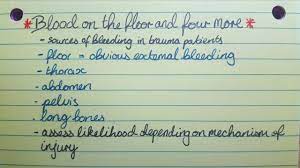 *Blood on the floor and four more*
- sources of bleeding in trauma patients
- floor = obvious external bleeding
- thorax
- abdomen
- pelvis
- long bones
- assess likelihood depending on mechanism of
injury